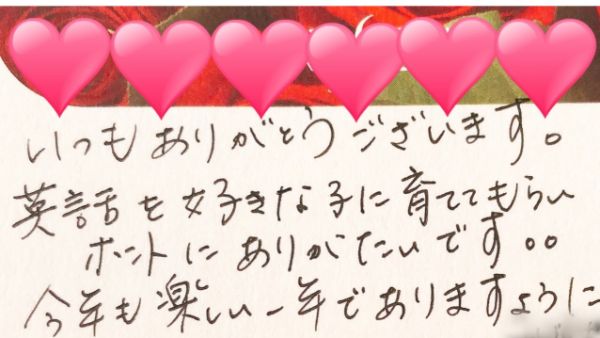 いつもありがとうございます。
英語を好きな子に育ててもらい
ホントにありがたいです。。
今年も楽しい一年でありますように